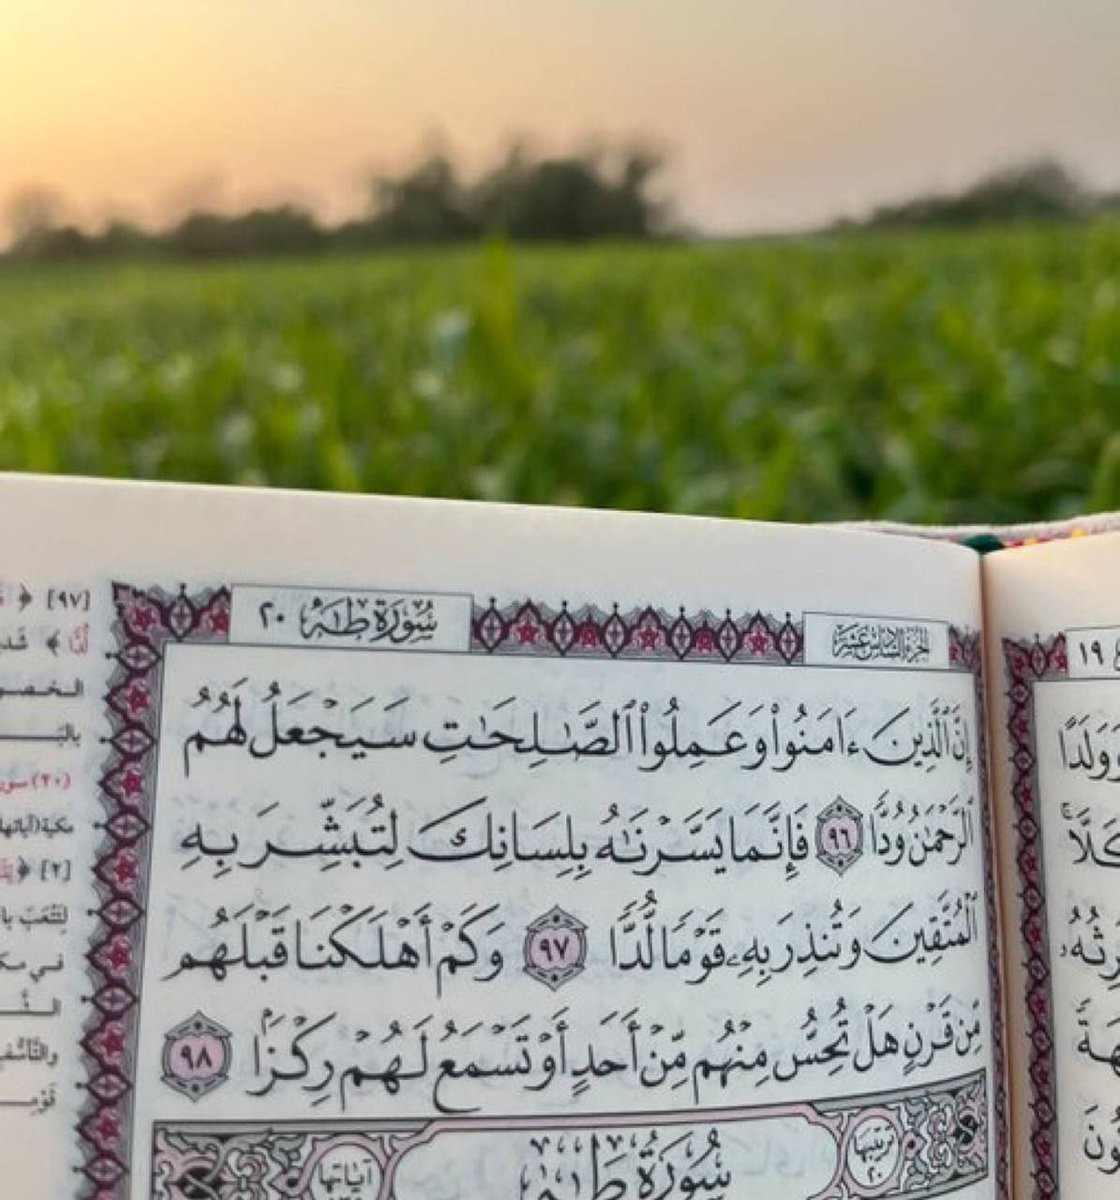 سُورَةُ طه ٢٠
الجزء السادس عشر
إِنَّ ٱلَّذِينَ ءَامَنُوا۟ وَعَمِلُوا۟ ٱلصَّـٰلِحَـٰتِ سَيَجْعَلُ لَهُمُ
ٱلرَّحْمَـٰنُ وُدًّا ٩٦ فَإِنَّمَا يَسَّرْنَـٰهُ بِلِسَانِكَ لِتُبَشِّرَ بِهِ
ٱلْمُتَّقِينَ وَتُنذِرَ بِهِۦ قَوْمًا لُّدًّا ٩٧ وَكَمْ أَهْلَكْنَا قَبْلَهُم
مِّن قَرْنٍ هَلْ تُحِسُّ مِنْهُم مِّنْ أَحَدٍ أَوْ تَسْمَعُ لَهُمْ رِكْزًۢا ٩٨
ترتيبها ٢٠
سُورَةُ طه
آياتها
[٩٧]
لُدًّا ﴾
بال
(٢٠) سور
مكية
[٢]
لِتَتْعَبَ
في
١٩
وَلَدًا
كَلَّا